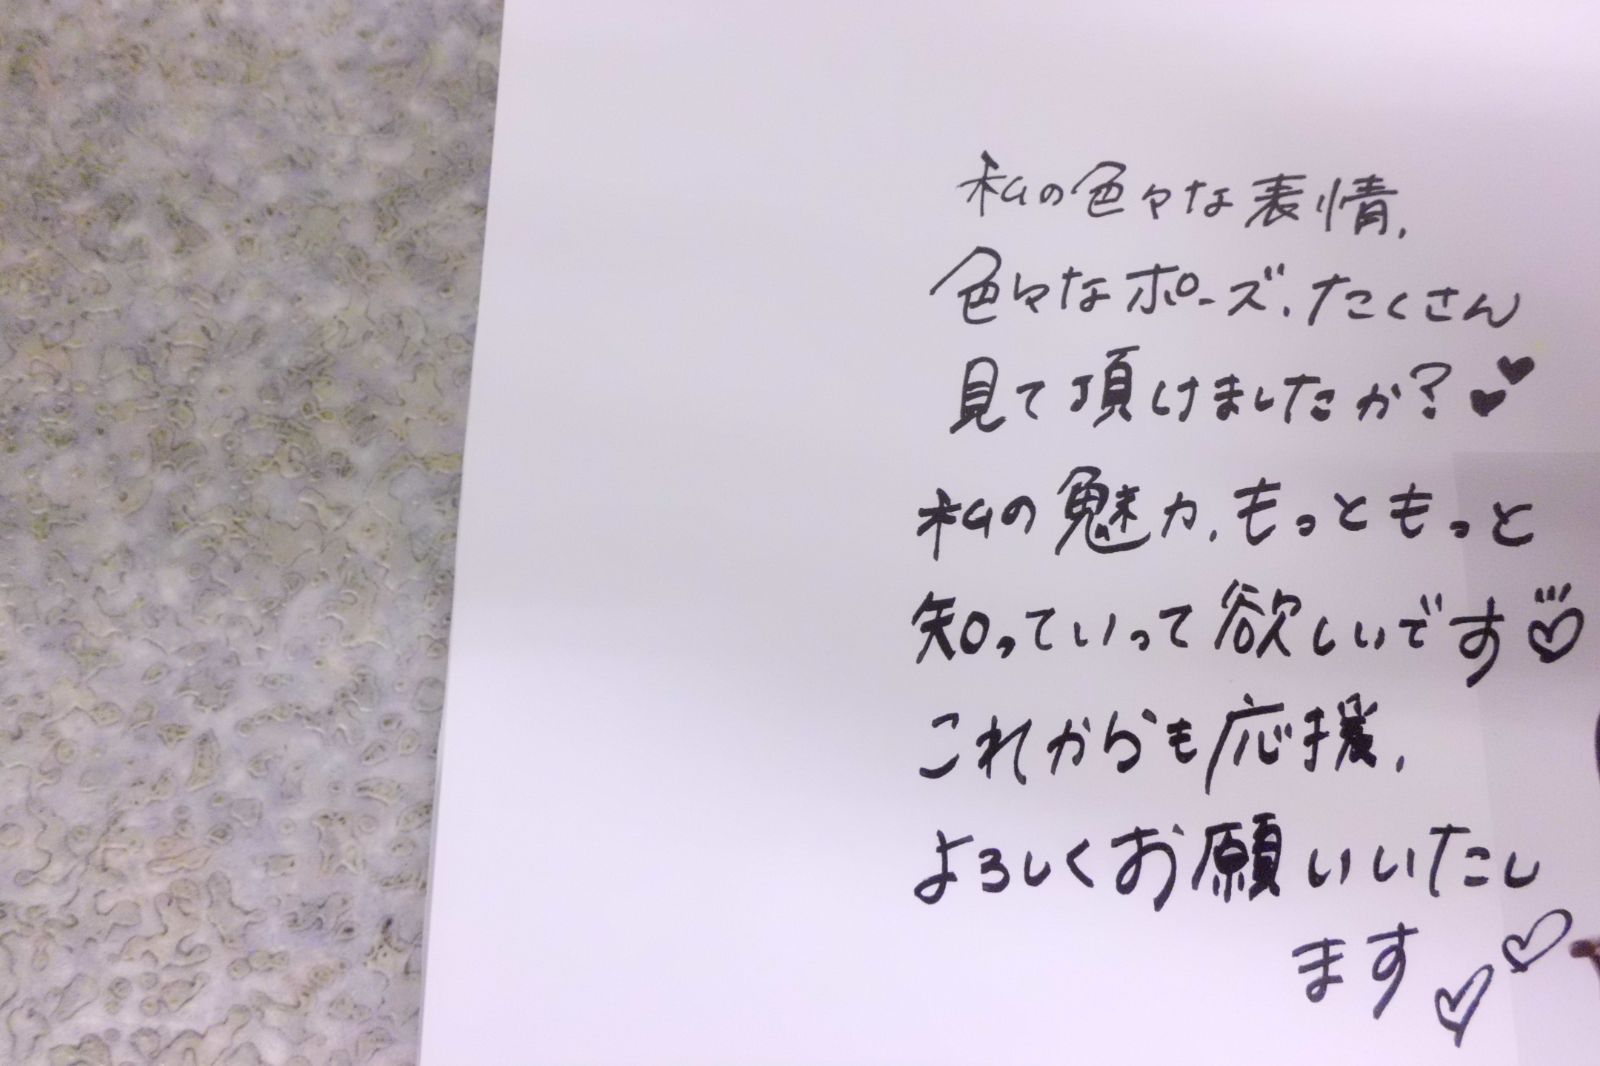 私の色々な表情、
色々なポーズ、たくさん
見て頂けましたか?♥♥
私の魅力、もっともっと
知っていって欲しいです♡
これからも応援、
よろしくお願いいたし
ます♡♡